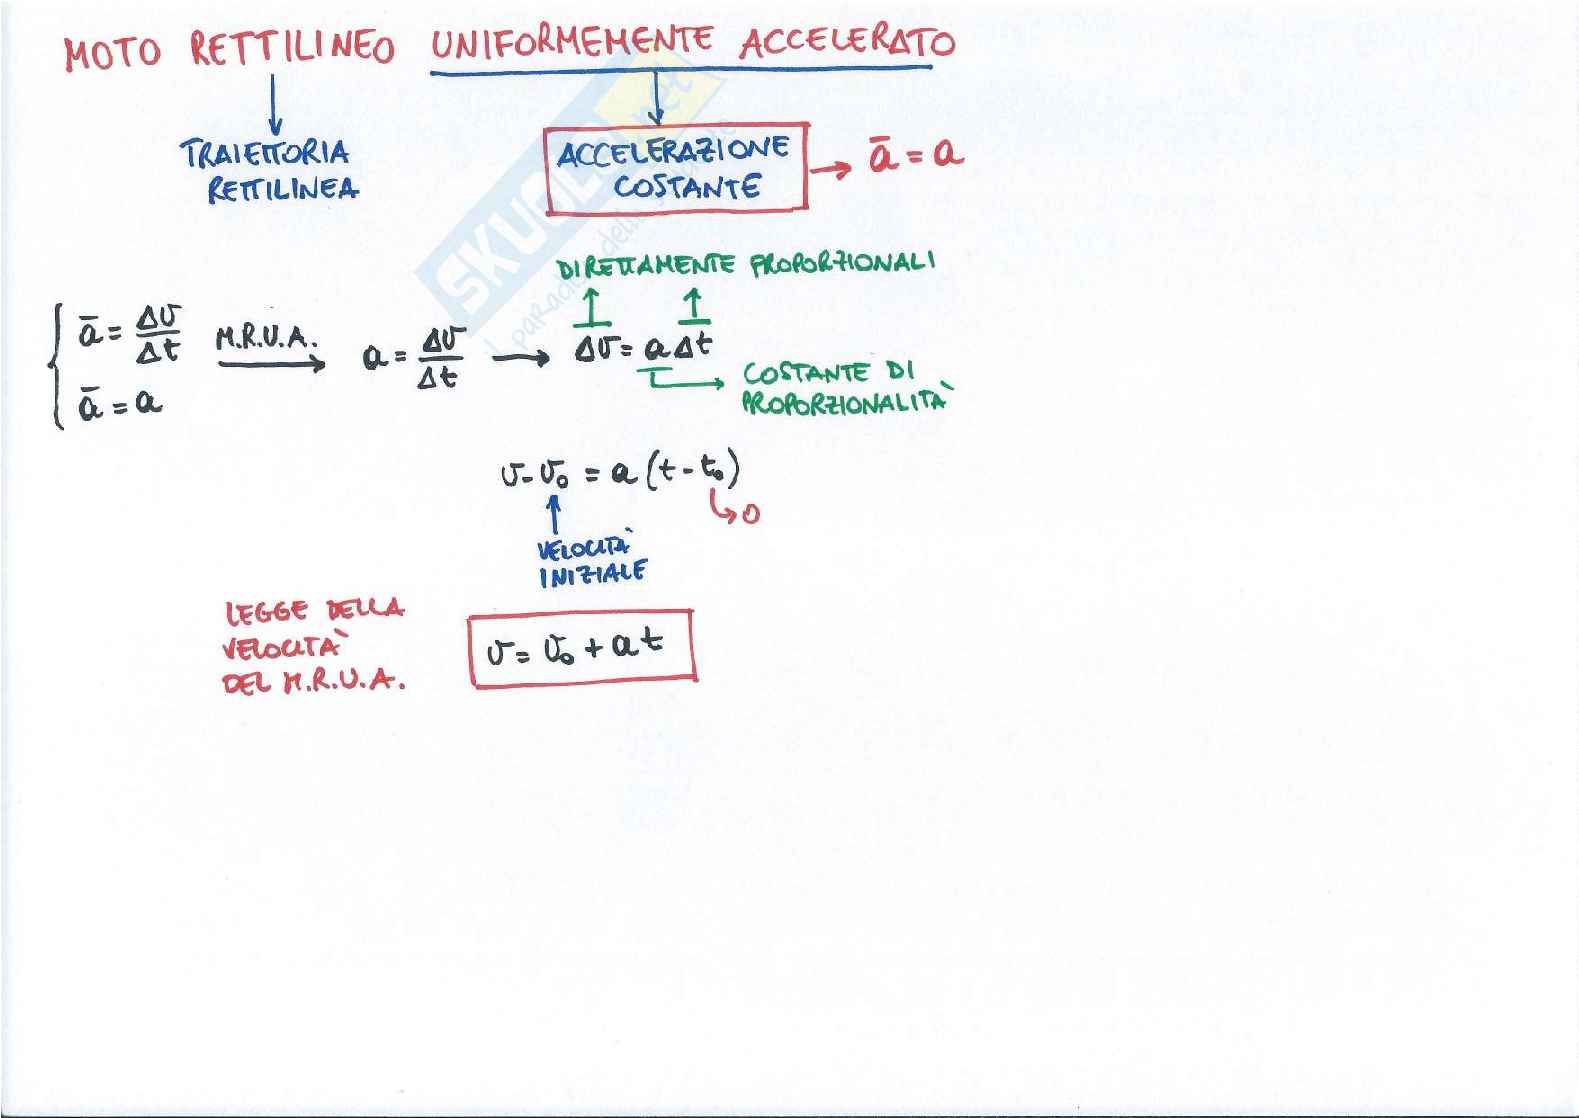 MOTO RETTILINEO UNIFORMEMENTE ACCELERATO
TRAIETTORIA
RETTILINEA
ACCELERAZIONE
COSTANTE
→ ā = a
SKUOLA.net
DIRETTAMENTE PROPORZIONALI
ā = Δv/Δt
ā = a
M.R.U.A.
a = Δv/Δt → Δv = a Δt
COSTANTE DI
PROPORZIONALITÀ
v - v₀ = a (t - t₀)
0
VELOCITÀ
INIZIALE
LEGGE DELLA
VELOCITÀ
DEL M.R.U.A.
v = v₀ + at